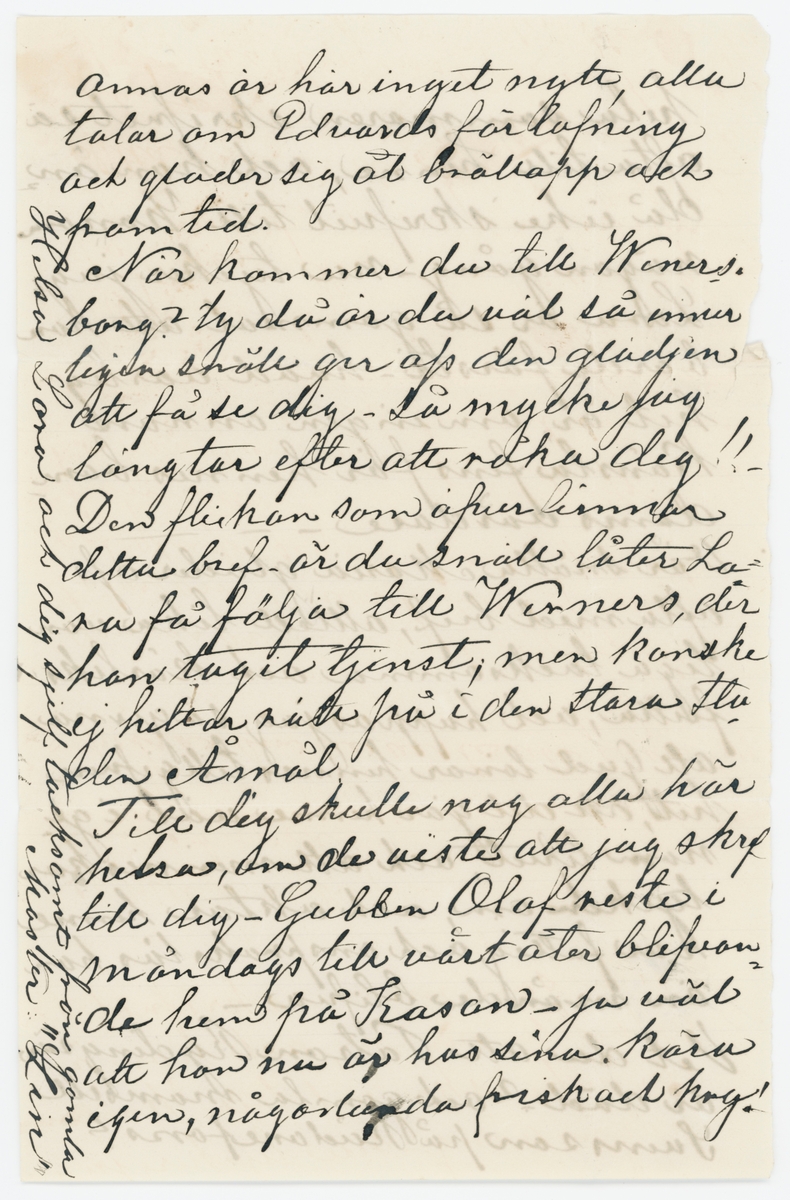 annas är här inget nytt, alla
talar om Edvards förlofning
och gläder sig åt bröllopp och
framtid.
När kommer du till Weners-
borg? ty då är du väl så inner
ligen snäll ger oss den glädjen
att få se dig - Så mycke jag
längtar efter att råka dig!!-
Den flickan som öfver lemnar
detta bref - är du snäll låter La=
ra få följa till Werners, der
hon tagit tjenst; men kanske
ej hittar rätt på i den stora sta
den Åmål.
Till dig skulle nog alla här
helsa, om de viste att jag skref
till dig - Gubben Olof reste i
måndags till vårt åter blifvan=
de hem på Kasan - ja väl
att han nu är hos sina kära
igen, någorlunda frisk och kry!
Helsa Lara och dig sjelf tacksamt från gamla
Moster "Lin"